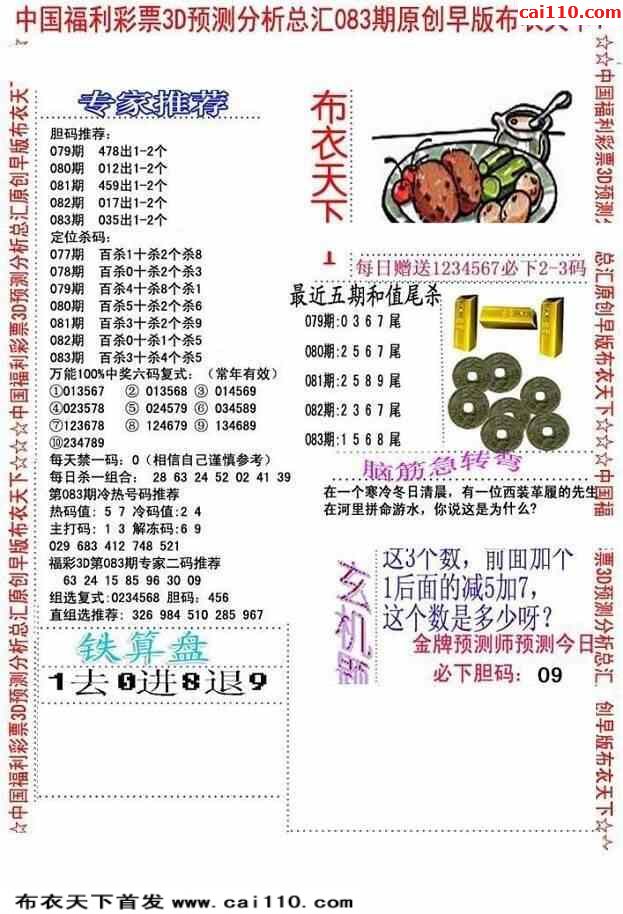 中国福利彩票3D预测分析总汇083期原创早版布衣天下
cai110.com
专家推荐
胆码推荐:
079期 478出1-2个
080期 012出1-2个
081期 459出1-2个
082期 017出1-2个
083期 035出1-2个
定位杀码:
077期 百杀1十杀2个杀8
078期 百杀0十杀2个杀3
079期 百杀4十杀8个杀1
080期 百杀5十杀2个杀6
081期 百杀3十杀2个杀9
082期 百杀0十杀1个杀5
083期 百杀3十杀4个杀5
万能100%中奖六码复式:(常年有效)
①013567 ② 013568 ③ 014569
④023578 ⑤ 024579 ⑥ 034589
⑦123678 ⑧ 124679 ⑨ 134689
⑩234789
每天禁一码:0(相信自己谨慎参考)
每日杀一组合: 28 63 24 52 02 41 39
第083期冷热号码推荐
热码值: 5 7 冷码值:2 4
主打码: 1 3 解冻码:6 9
029 683 412 748 521
福彩3D第083期专家二码推荐
63 24 15 85 96 30 09
组选复式:0234568 胆码: 456
直组选推荐: 326 984 510 285 967
铁算盘
1去0进8退9
布衣天下
1
每日赠送1234567必下2-3码
最近五期和值尾杀
079期:0 3 6 7 尾
080期:2 5 6 7 尾
081期:2 5 8 9 尾
082期:2 3 6 7 尾
083期:1 5 6 8 尾
脑筋急转弯
在一个寒冷冬日清晨,有一位西装革履的先生
在河里拼命游水,你说这是为什么?
玄机题
这3个数,前面加个
1后面的减5加7,
这个数是多少呀?
金牌预测师预测今日
必下胆码: 09
☆中国福利彩票3D预测分析总汇原创早版布衣天下☆☆☆中国福利彩票3D预测分析总汇原创早版布衣天
☆☆中国福利彩票3D预测分
总汇原创早版布衣天下☆☆☆中国福
票3D预测分析总汇
创早版布衣天下☆☆
布衣天下首发 www.cai110.com